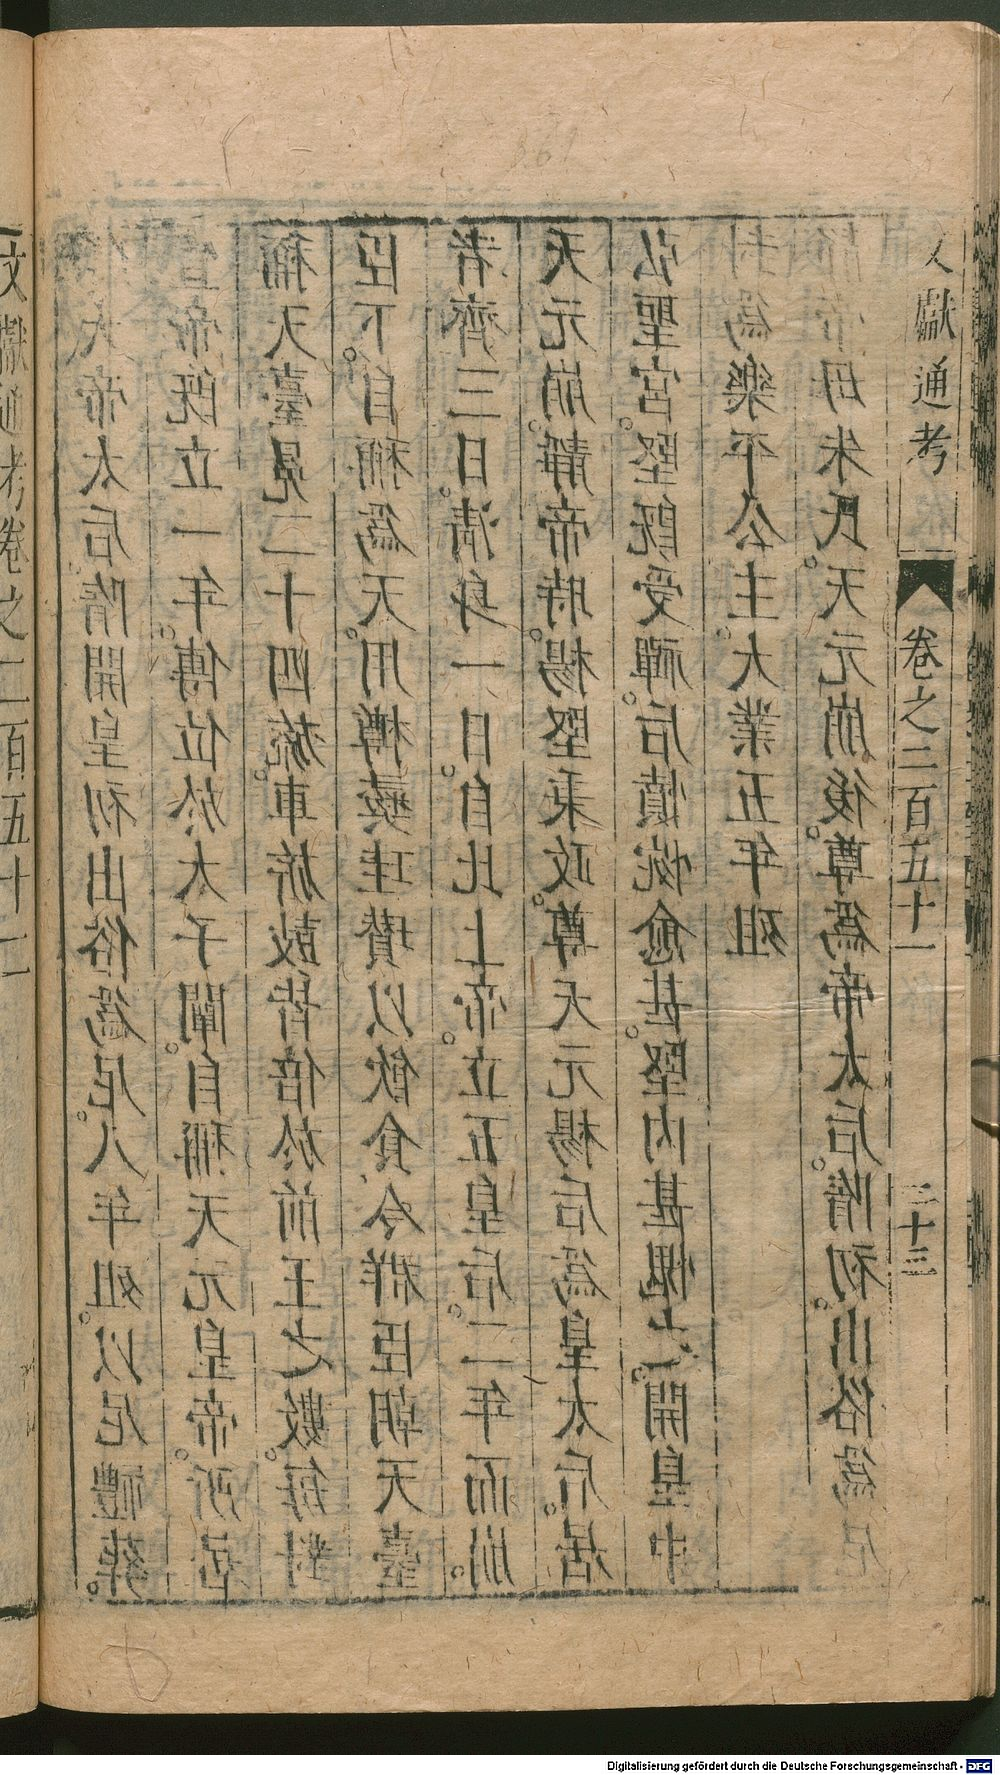 文獻通考卷之二百五十一
大帝太后隋開皇初出俗為尼。八年殂。以尼禮葬。
宣帝既立一年。傳位於太子闡。自稱天元皇帝。所居
稱天臺冕二十四旒。車旂鼓皆倍於前王之數。每對
臣下。自稱為天。用樽彝珪瓚以飲食。令群臣朝天臺
者齊三日。清身一日。自比上帝。立五皇后。二年而崩。
天元崩。靜帝時。楊堅秉政。尊天元楊后為皇太后。居
弘聖宮。堅既受禪。后憤惋愈甚。堅內甚愧之。開皇中
封為樂平公主。大業五年殂
靜帝母朱氏。天元崩後。尊為帝太后。隋初。出俗為尼
文獻通考 卷之二百五十一 三十三
Digitalisierung gefördert durch die Deutsche Forschungsgemeinschaft - DFG